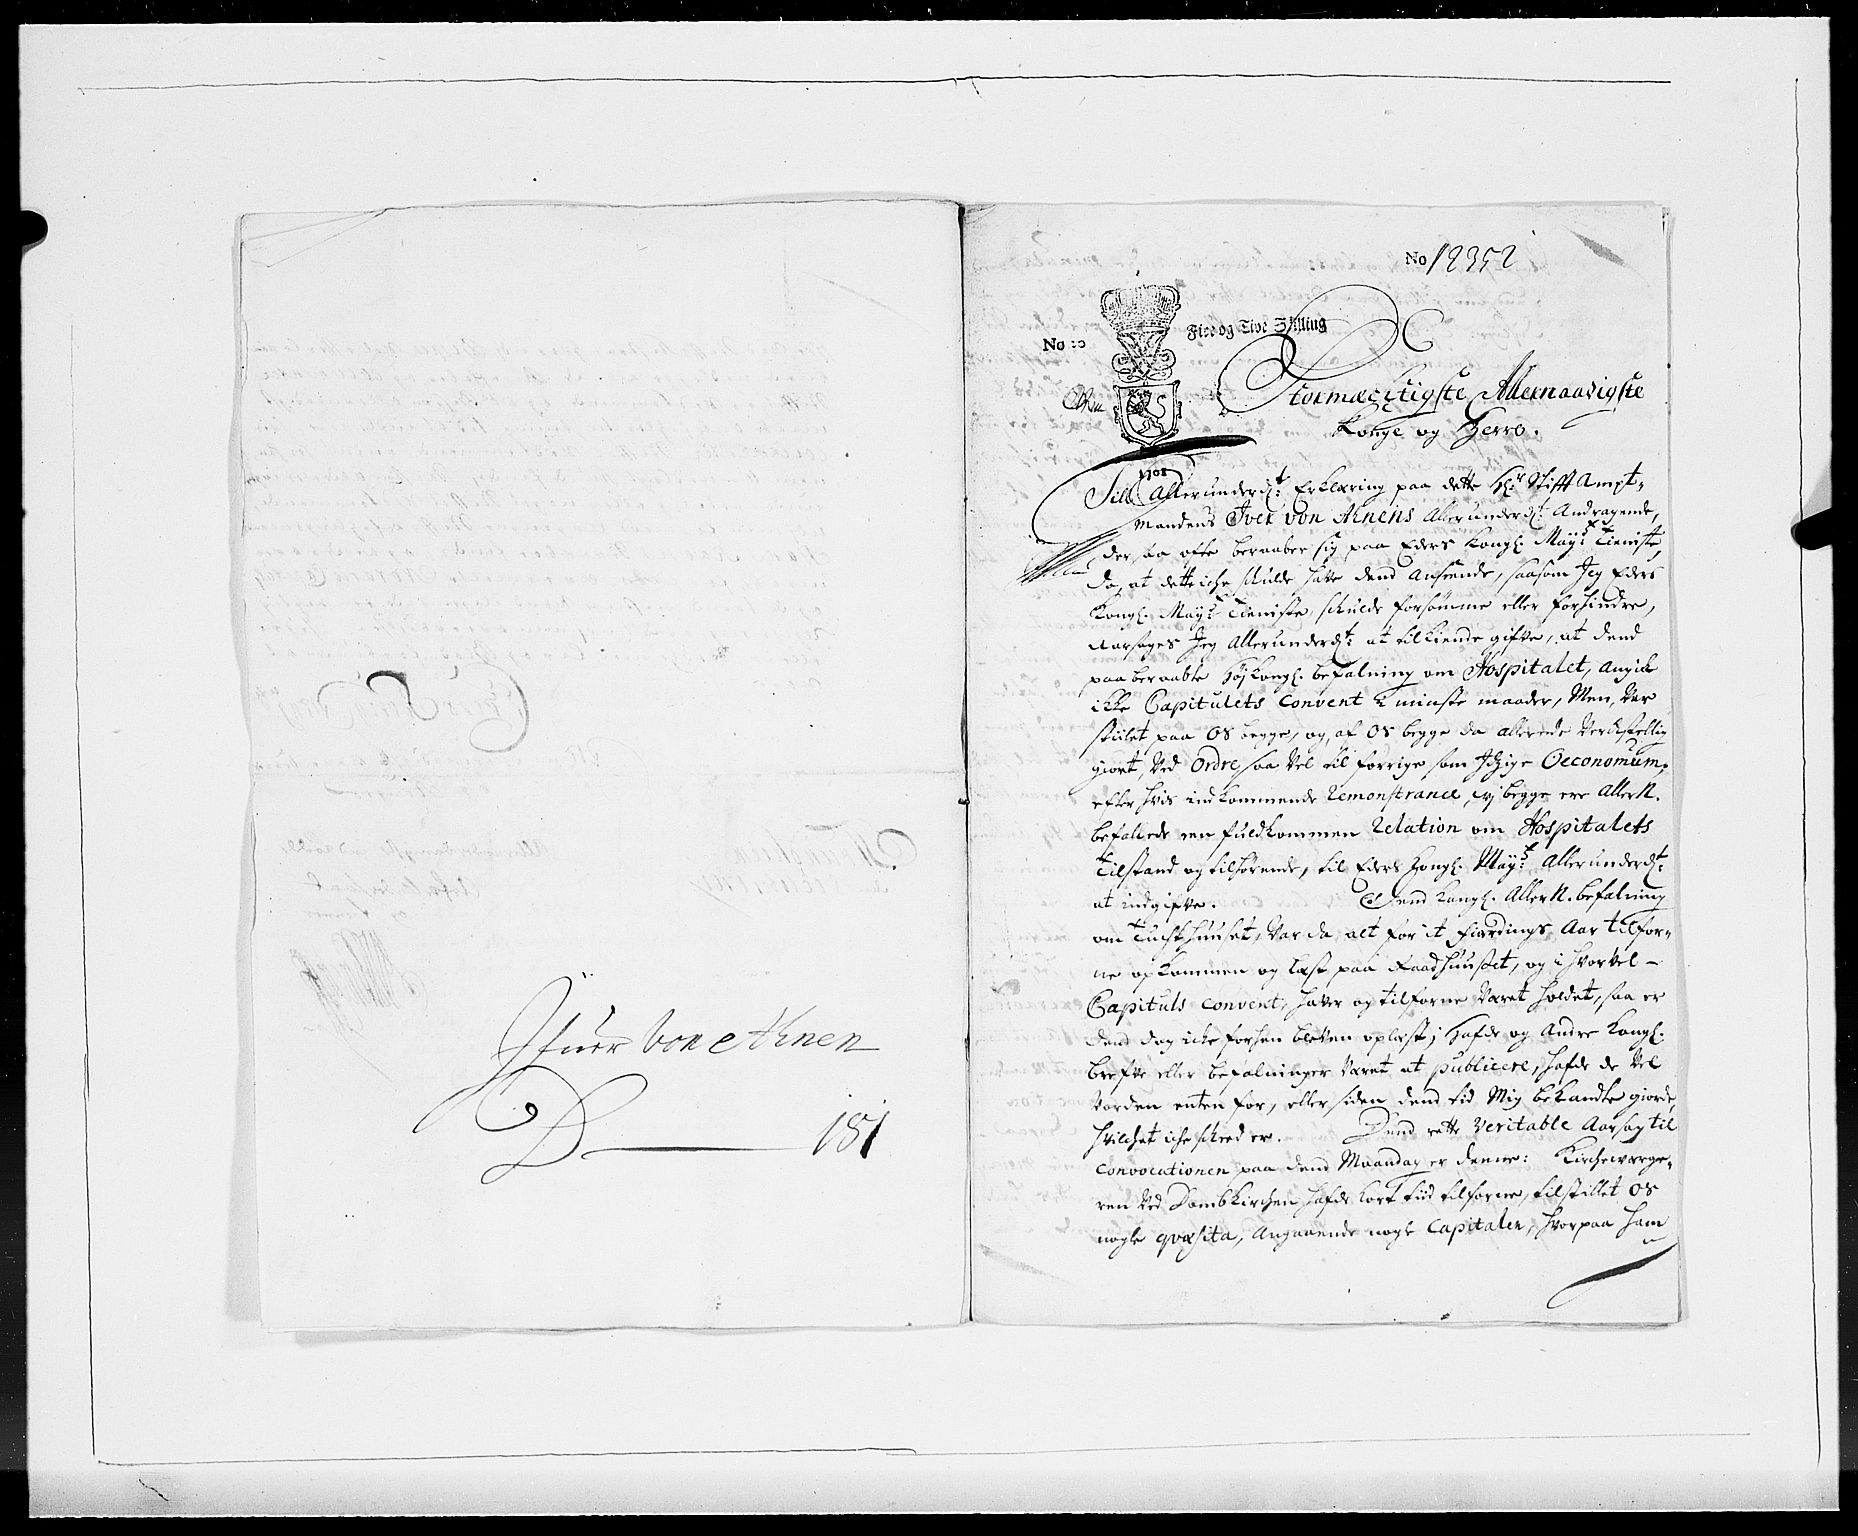 Ifuer von Ahnen
D 181
No 12352
Fire og Tive Skilling
No 20
Stormæchtigste Allernaadigste
Konge og Herre.
1708
Till Allerunderd: Erklæring paa dette H: Stifft Ampt-
mandens Iver von Ahnens Allerunderd: Andragende,
der saa ofte beraaber sig paa Eders Kongl: May: Tieniste,
da, at dette iche skulde hafve dend Anseende, saasom Jeg Eders
Kongl: May: Tieniste, skulde forsømme eller forhindre,
Aarsages Jeg Allerunderd: at tilkiende gifve, at dend
paaberaabte høj Kongl: befalning om Hospitalet, angick
ikke Capitulets Convent i minste maader, Men, Var
stiilet paa os begge, og, af os begge da allerede Verckstellig
giort, Ved Ordre, saa Vel til forrige som Itzige Oeconomum,
efter hvis indkommende Remonstrance, wj begge ere AllerN.
befallede en fuldkommen Relation om Hospitalets
Tilstand og tilhørende, til Eders Kongl: May: Allerunderd:
at indgifve. Dend Kongl: AllerN. befalning
om Tuchthuuset, Var da alt for it fierdings Aar tilfor-
ne opkommen og læst paa Raadhuuset, og ihvorvel
Capituls Convent, hafver og tilforne Været holdet, saa er
dend dog iche forhen bleven oplæst; Hafde og Andre Kongl:
brefve eller befalninger Været at publicere, hafde de Vel
Vorden enten for, eller siden dend tid Mig bekandte giorde,
hvilchet iche skeed er. Dend rette Veritable Aarsag til
Convocationen paa dend Maandag er denne: Kirchewerge-
ren Ved Dombkirchen hafde kort tiid tilforne, tilstillet os
nogle qvæsita, Angaaende nogle Capitaler, hvorpaa ham